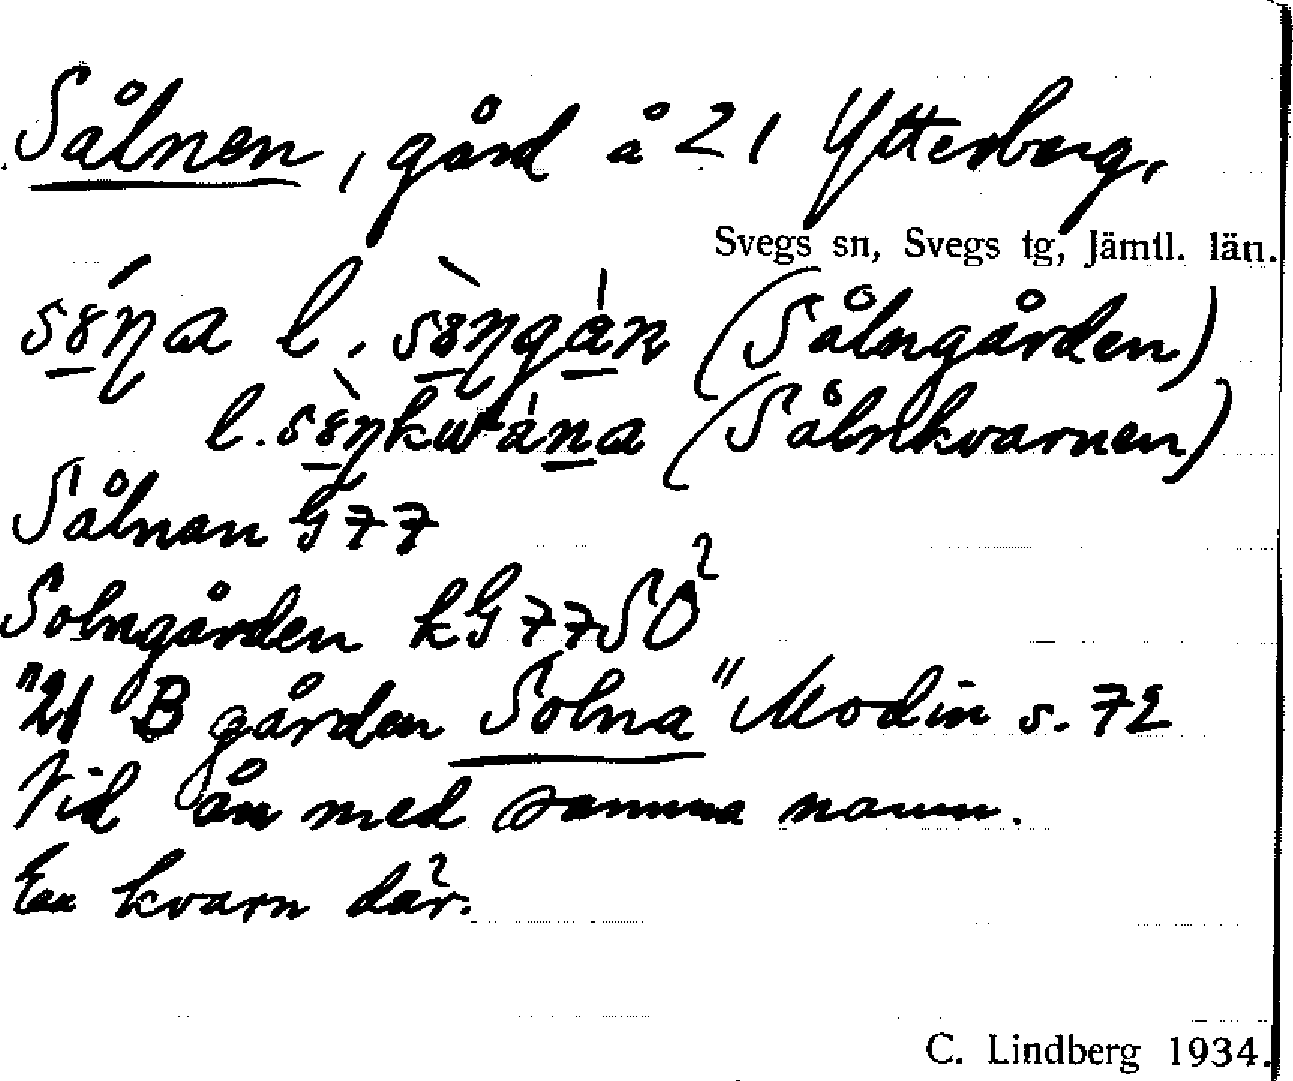 Sålnen, gård å 21 Ytterberg,
Svegs sn, Svegs tg, Jämtl. län.
l. (Sålngården)
l. (Sålnkvarnen)
Sålnan G 77
Solngården kG 77 SO
"21 B gården Solna" Modin s. 72
Vid ån med samma namn.
En kvarn där.
C. Lindberg 1934.